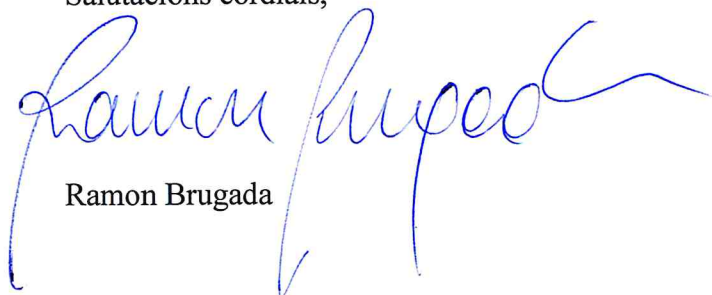 Salutacions cordials,
Ramon Brugada
Ramon Brugada